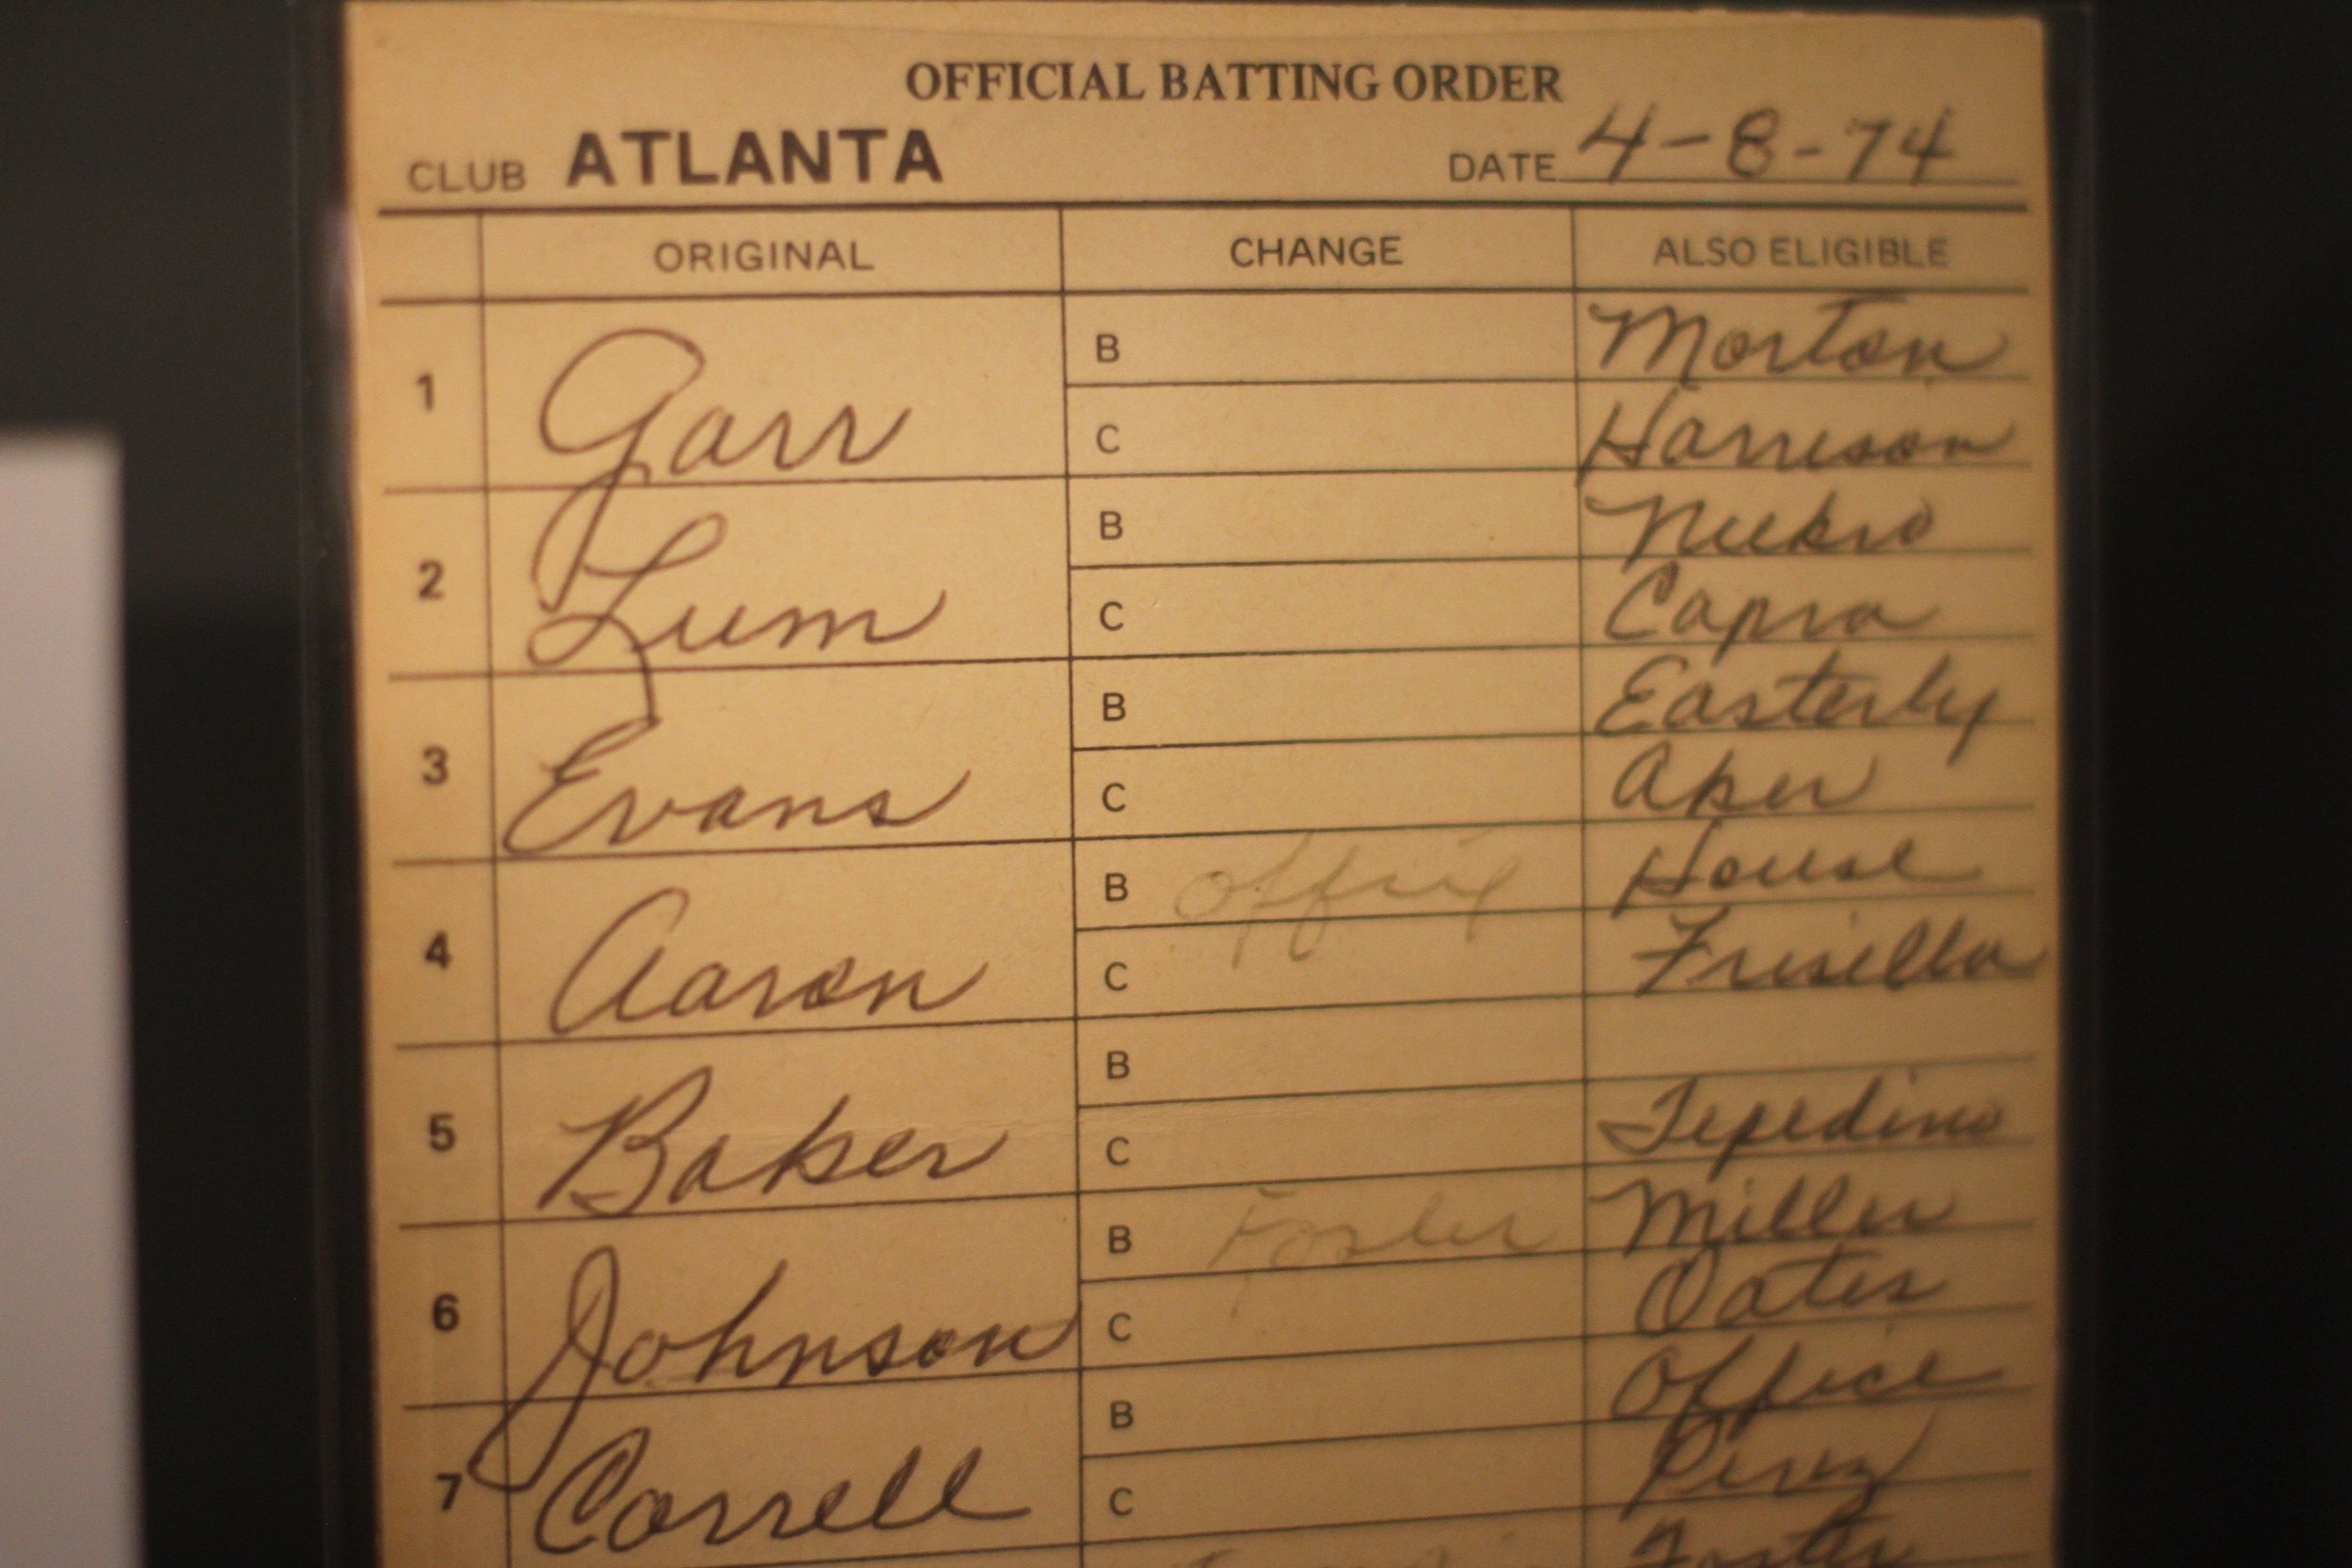 OFFICIAL BATTING ORDER
CLUB ATLANTA DATE 4-8-74
ORIGINAL CHANGE ALSO ELIGIBLE
1 Garr B Morton
C Harrison
2 Lum B Niekro
C Capra
3 Evans B Easterly
C Aker
4 Aaron B Office House
C Frisella
5 Baker B
C Tepedino
6 Johnson B Foster Miller
C Oates
7 Correll B Office
C Perez
Foster